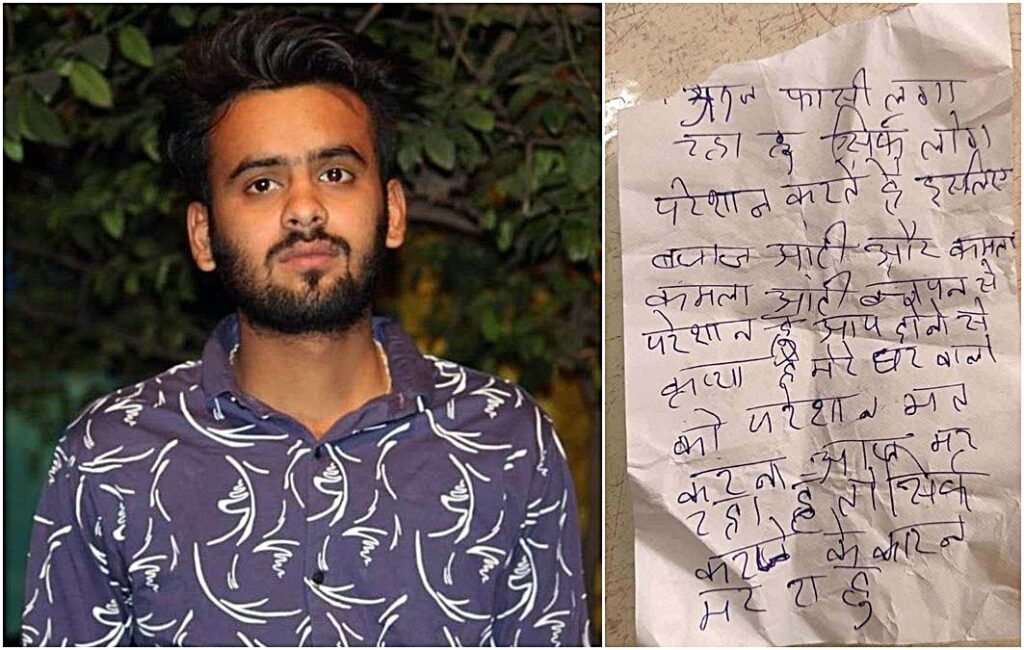 फासी लगा
रहा हु सिर्फ लोग
परेशान करते हे इसलिए
आंटी और कमला
कमला आंटी बचपन से
परेशान हु आप दोनो से
हे मेरे घर वालो
को परेशान मत
करना आज मर
रहा हु तो सिर्फ
के कारन
मर रा हु